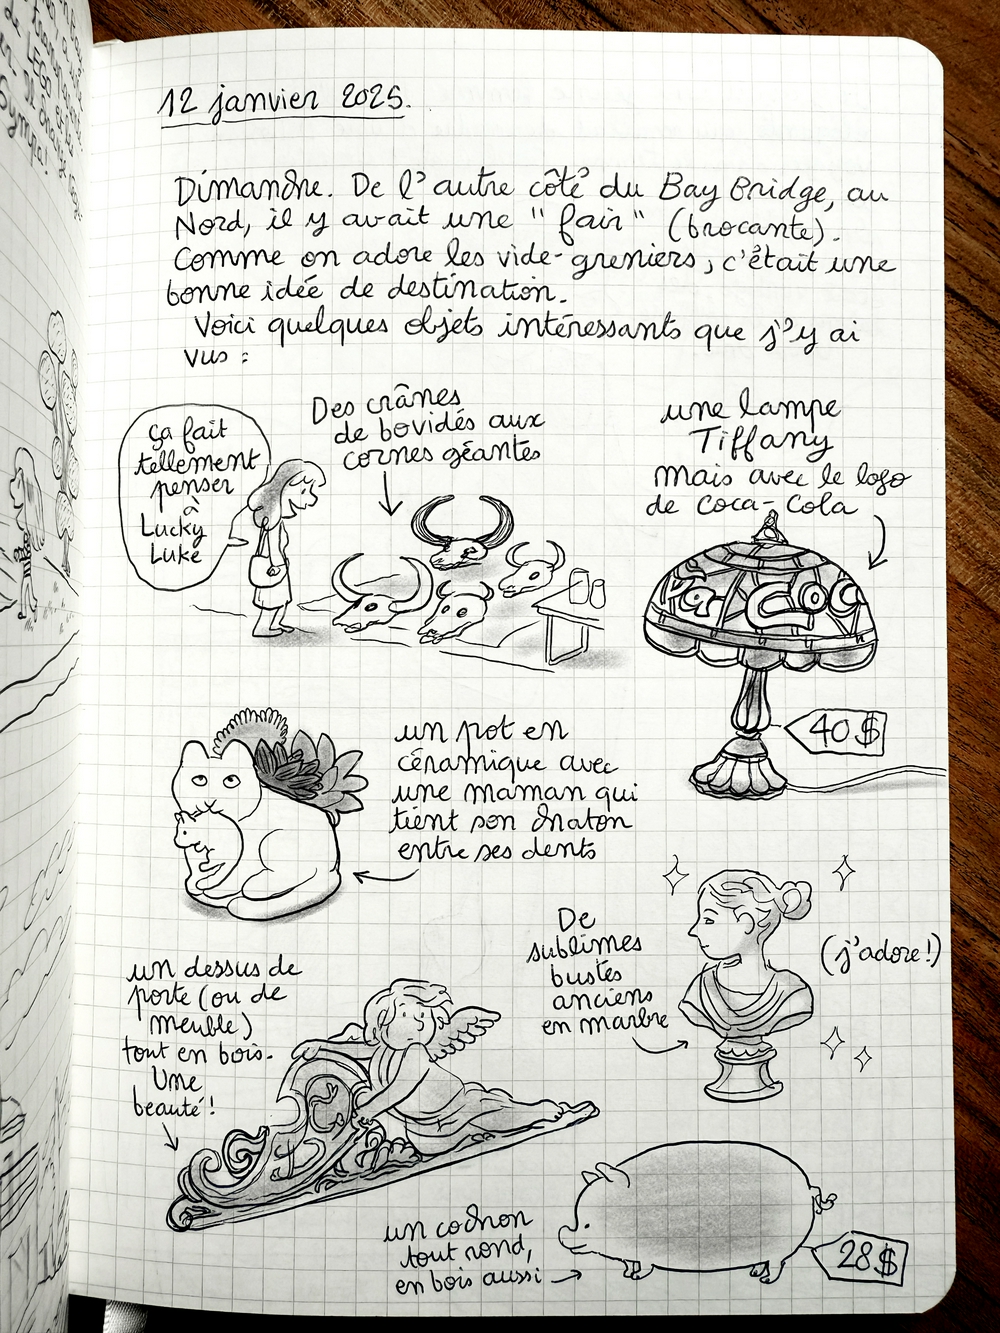 12 janvier 2025.
Dimanche. De l'autre côté du Bay Bridge, au
Nord, il y avait une "fair" (brocante).
Comme on adore les vide-greniers, c'était une
bonne idée de destination.
Voici quelques objets intéressants que j'y ai
vus :
ça fait
tellement
penser
à
Lucky
Luke
Des crânes
de bovidés aux
cornes géantes
une lampe
Tiffany
mais avec le logo
de Coca-Cola
Ca Coca
40$
un pot en
céramique avec
une maman qui
tient son chaton
entre ses dents
De
sublimes
bustes
anciens
en marbre
(j'adore!)
un dessus de
porte (ou de
meuble)
tout en bois.
Une
beauté!
un cochon
tout rond,
en bois aussi
28$
LEGO
Sympa!